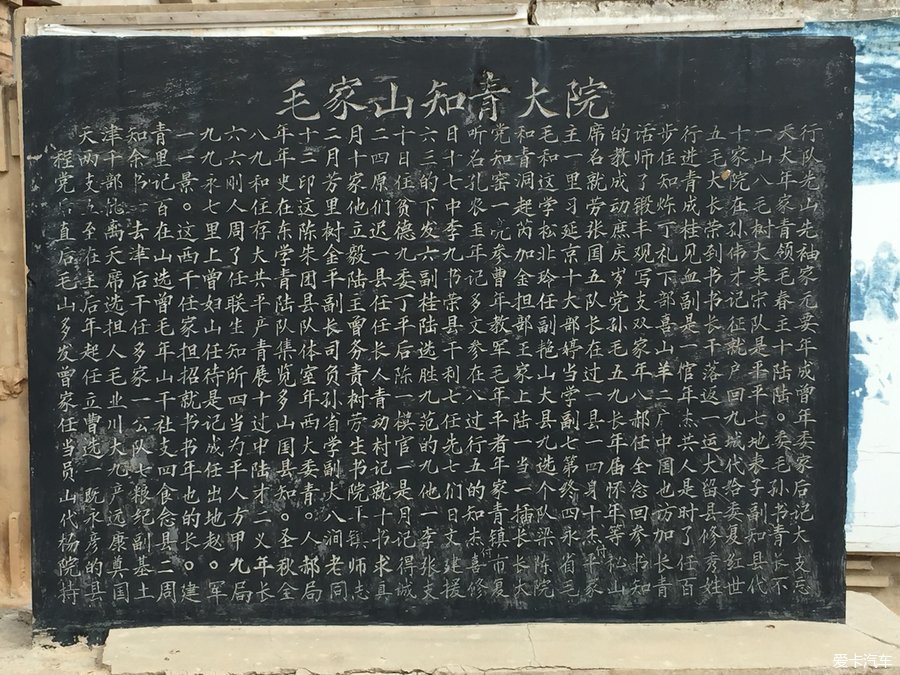 毛家山知青大院
行队先山先袖家元要年成曾年委家后记大支忘
天大年家青领毛春王十陆陆。委毛孙书青长不
一山八毛树大来宗队是平平七地表子副知县代
十家院在孙伟才记征就户回九城代给委复红世
五毛大长荣到书书长干落返一运大留县修秀姓
行进青成桂见血副是官年杰共人是时了任百
步任知炸丁礼下部喜山羊二广中国也方加长青
话师了锻丰观写支双家年八郝任全念回参书知
的教成动庶庆岁党孙毛五九长年庙怀年等松山
席名就劳张国五队长在过一县一四身十杰付平家
主一里习延京十大部婷当学副七第终四永省毛
毛和这学松北玲任副艳山大县九选个队梁陈院
和青洞起芮加金担部王家上陆一当一插长长大
党知窑一亮参曹年教军毛年平者年家青镇市复
听名孔农玉年记多文参在八过行五的知杰付喜修
日十七中李九书荣县干利七任先七们日文建援
六三的下发六副桂陆选胜九范的九他一李张支
十日任贫德九委丁平后陈一模官一是月记得诚
二四原们迟一县任任长人青动村记就十书求真
月十家他立毅陆主曾务责树劳生书院下镇师志
二月芳里树金平副长司负孙省学副大八涧老同
十二印这陈朱团县队体室年西大委青。人郝局
年年史在东学青陆队集览多山国县知。圣秋全
八九和任存大共平产青展十过中陆才二义年长
六六刚人周了任联生知所四当为平人方甲。九局
九九永七里上曾妇山任待是记成任出地赵。军
一一景。这西干任家担招就书书年也的长。建
青里记百在山选曾毛年山干社支四食念县二周
知余书去津后干任多家一公队七粮纪副墓土
津干部忧禹天席选担人毛业川大九产远康奠国
天两支至在主后年起任立曹选一既永彦的县
程党后直后毛山多发曾家任当员山代杨院持
爱卡汽车